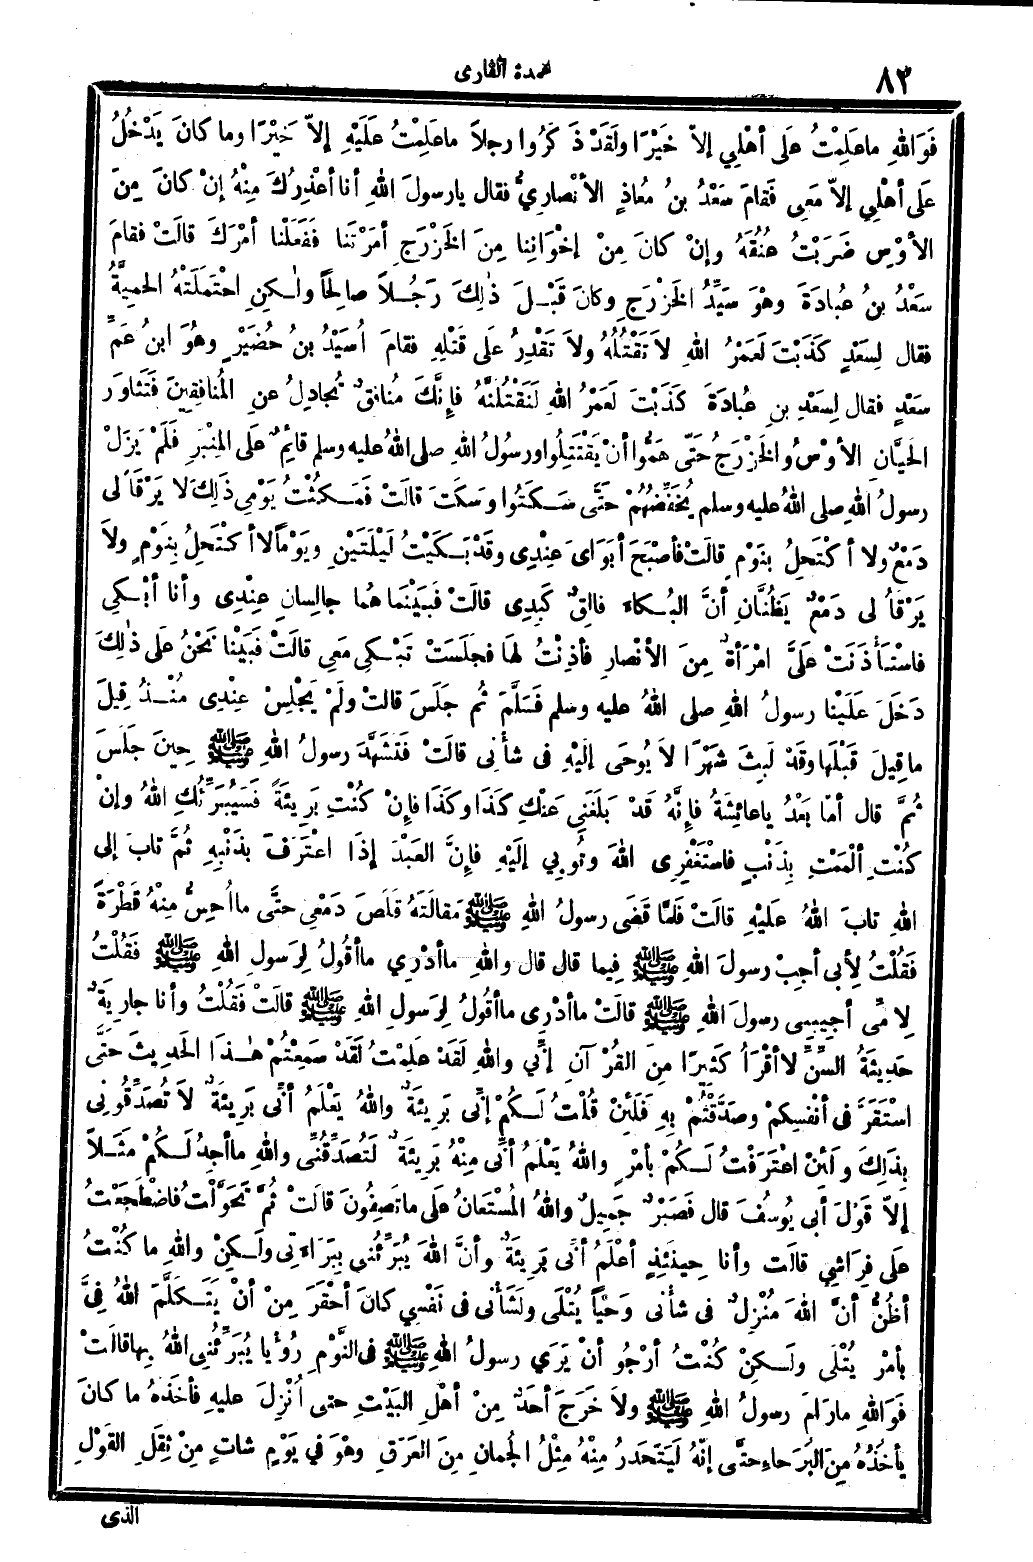 ٨٢
عمدة القارى
فَوَاللهِ ماعَلِمْتُ عَلَى أهْلِي إلاّ خَيْرًا ولَقَدْ ذَكَرُوا رجلاً ماعَلِمْتُ عَلَيْهِ إلاّ خَيْرًا وما كانَ يَدْخُلُ
عَلَى أهْلِي إلاّ مَعِى فَقامَ سَعْدُ بنُ مُعاذٍ الأنْصارِيُّ فقال يارسولَ اللهِ أنا أعْذِرُكَ مِنْهُ إنْ كانَ مِنَ
الأوْسِ ضَرَبْتُ عُنُقَهُ وإنْ كانَ مِنْ إخْوَانِنا مِنَ الخَزْرَجِ أمَرْتَنا فَفَعَلْنا أمْرَكَ قالَتْ فقامَ
سَعْدُ بنُ عُبادَةَ وهْوَ سَيِّدُ الخَزْرَجِ وكانَ قَبْلَ ذٰلِكَ رَجُلاً صالِحًا ولٰكِنِ احْتَمَلَتْهُ الحَمِيَّةُ
فقال لِسَعْدٍ كَذَبْتَ لَعَمْرُ اللهِ لاَ تَقْتُلُهُ ولاَ تَقْدِرُ عَلَى قَتْلِهِ فقامَ أُسَيْدُ بنُ حُضَيْرٍ وهُوَ ابنُ عَمِّ
سَعْدٍ فقال لِسَعْدِ بنِ عُبادَةَ كَذَبْتَ لَعَمْرُ اللهِ لَنَقْتُلَنَّهُ فإنَّكَ مُنافِقٌ تُجادِلُ عنِ المُنافِقِينَ فَتَثاوَرَ
الحَيَّانِ الأوْسُ والخَزْرَجُ حَتَّى هَمُّوا أنْ يَقْتَتِلُوا ورسُولُ اللهِ صلى اللهُ عليه وسلم قائِمٌ عَلَى المِنْبَرِ فَلَمْ يَزَلْ
رسولُ اللهِ صلى اللهُ عليه وسلم يُخَفِّضُهُمْ حَتَّى سَكَتُوا وسَكَتَ قالَتْ فَمَكُثْتُ يَوْمِى ذٰلِكَ لا يَرْقَأُ لى
دَمْعٌ ولا أكْتَحِلُ بنَوْمٍ قالَتْ فأصْبَحَ أبَوَاىَ عِنْدِى وقَدْ بَكَيْتُ لَيْلَتَيْنِ ويَوْمًا لا أكْتَحِلُ بِنَوْمٍ ولاَ
يَرْقَأُ لى دَمْعٌ يَظُنَّانِ أنَّ البُكاءَ فالِقٌ كَبِدِى قالَتْ فَبَيْنَما هُما جالِسانِ عِنْدِى وأنا أبْكِي
فاسْتَأْذَنَتْ عَلَيَّ امْرَأةٌ مِنَ الأنْصارِ فأذِنْتُ لهَا فجلَسَتْ تَبْكِى مَعِى قالَتْ فَبَيْنا نَحْنُ عَلَى ذٰلِكَ
دَخَلَ عَلَيْنا رسولُ اللهِ صلى اللهُ عليه وسلم فَسَلَّمَ ثُمَ جَلَسَ قالَتْ ولَمْ يَجْلِسْ عِنْدِى مُنْذُ قِيلَ
ماقِيلَ قَبْلَها وقَدْ لَبِثَ شَهْرًا لاَ يُوحَى إلَيْهِ فى شأنى قالَتْ فَتَشَهَّدَ رسولُ اللهِ ﷺ حِينَ جَلَسَ
ثُمَّ قال أمّا بَعْدُ ياعائِشَةُ فإنَّهُ قَدْ بَلَغَنِى عَنْكِ كَذَا وكَذَا فإنْ كُنْتِ بَرِيئَةً فَسَيُبَرِّئُكِ اللهُ وإنْ
كُنْتِ ألْمَمْتِ بِذَنْبٍ فاسْتَغْفِرِى اللهَ وتُوبِي إلَيْهِ فإنَّ العَبْدَ إذَا اعْتَرَفَ بذَنْبِهِ ثُمَّ تابَ إلى
اللهِ تابَ اللهُ عَلَيْهِ قالَتْ فَلَمَّا قَضَى رسولُ اللهِ ﷺ مَقالَتَهُ قَلَصَ دَمْعِى حتَّى ماأُحِسُّ مِنْهُ قَطْرَةً
فَقُلْتُ لِأبى أجِبْ رسولَ اللهِ ﷺ فِيما قال قال واللهِ ماأدْرِي ماأقُولُ لِرَسولِ اللهِ ﷺ فَقُلْتُ
لِامِّى أجِيبِى رسولَ اللهِ ﷺ قالَتْ ماأدْرِى ماأقُولُ لِرَسولِ اللهِ ﷺ قالَتْ فَقُلْتُ وأنا جارِيَةٌ
حَدِيثَةُ السِّنِّ لاأقْرَأُ كَثِيرًا مِنَ القُرْآنِ إنِّي واللهِ لَقَدْ عَلِمْتُ لَقَدْ سَمِعْتُمْ هٰذَا الحَدِيثَ حَتَّى
اسْتَقَرَّ فى أنْفُسِكمْ وصَدَّقْتُمْ بِهِ فَلَئِنْ قُلْتُ لَكُمْ إنِّى بَرِيئَةٌ واللهُ يَعْلَمُ أنِّى بَرِيئَةٌ لاَ تُصَدِّقُونِى
بِذٰلِكَ ولَئِنْ اعْتَرَفْتُ لَكُمْ بأمْرٍ واللهُ يَعْلَمُ أنِّى مِنْهُ بَرِيئَةٌ لَتُصَدِّقُنِّى واللهِ ماأجِدُ لَكُمْ مَثَلاً
إلاّ قَوْلَ أبى يُوسُفَ قال فَصَبْرٌ جَمِيلٌ واللهُ المُسْتَعانُ عَلَى ماتَصِفُونَ قالَتْ ثُمَّ تَحَوَّلْتُ فاضْطَجَعْتُ
عَلَى فِرَاشِي قالَت وأنا حِينَئِذٍ أعْلَمُ أنِّى بَرِيئَةٌ وأنَّ اللهَ يُبَرِّئُنى بِبَرَاءَتِى ولٰكِنْ واللهِ ما كُنْتُ
أظُنُّ أنَّ اللهَ مُنْزِلٌ فى شأنى وَحْيًا يُتْلَى ولَشَأْنى فى نَفْسِي كانَ أحْقَرَ مِنْ أنْ يَتَكَلَّمَ اللهُ فِىَّ
بأمْرٍ يُتْلَى ولٰكِنْ كُنْتُ أرْجُو أنْ يَرَي رسولُ اللهِ ﷺ فى النَّوْمِ رُؤْيا يُبَرِّئُنِى اللهُ بِها قالَتْ
فَوَاللهِ مارَامَ رسولُ اللهِ ﷺ ولاَ خَرَجَ أحَدٌ مِنْ أهْلِ البَيْتِ حتى أُنْزِلَ عليهِ فأخَذَهُ ما كانَ
يأخُذُهُ مِنَ البُرَحاءِ حتَّى إنَّهُ لَيَتَحَدَّرُ مِنْهُ مِثْلُ الجُمانِ مِنَ العَرَقِ وهْوَ في يَوْمٍ شاتٍ مِنْ ثِقَلِ القَوْلِ
الذى